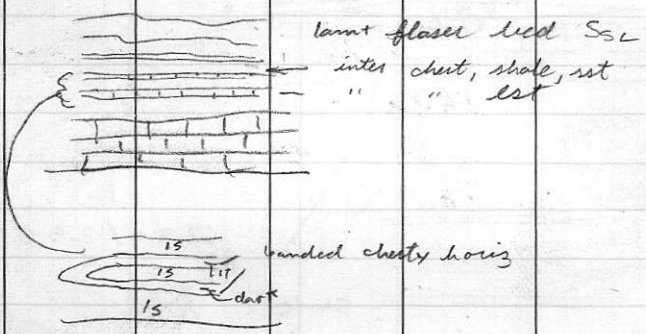 lam + flaser bed SSL
inter chert, shale, sst
" " lst
ls
banded cherty horiz
ls lt
dark
ls